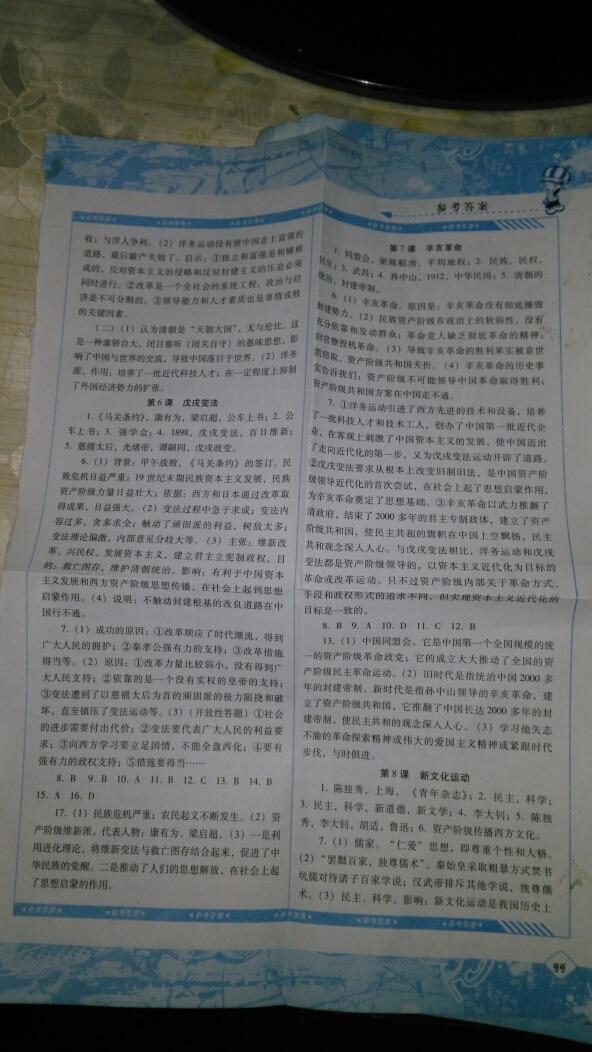 参考答案
收；与洋人争利。（2）洋务运动没有使中国走上富强的
道路，最后破产失败了。启示：①独立和富强是相辅相
成的，反对资本主义的侵略和反对封建主义的压迫必须
同时进行。②改革是一个全社会的系统工程，政治与经
济是不可分割的。③领导能力和人才素质也是事情成败
的关键因素。
（二）（1）认为清朝是“天朝大国”，无与伦比。这
是一种虚骄自大、闭目塞听（闭关自守）的愚昧思想，影
响了中国与世界的交流，导致中国落后于世界。（2）洋务
派。作用：培养了一批近代科技人才；在一定程度上抑制
了外国经济势力的扩张。
第6课 戊戌变法
1.《马关条约》，康有为，梁启超，公车上书；2. 公
车上书；3. 强学会；4. 1898，戊戌变法，百日维新；
5. 慈禧太后，光绪帝，谭嗣同，戊戌政变。
6.（1）背景：甲午战败，《马关条约》的签订。民
族危机日益严重；19世纪末期民族资本主义发展，民族
资产阶级力量日益壮大；依据：西方和日本通过改革取
得成果，日益强大。（2）变法过程中急于求成；变法内
容过多，贪多求全；触动了顽固派的利益，树敌太多；
变法理论偏激，内部意见分歧大等。（3）主张：维新改
革、兴民权、发展资本主义，建立君主立宪制政权。目
的：救亡图存，维护清朝统治。影响：有利于中国资本
主义发展和西方资产阶级思想传播，在社会上起到思想
启蒙作用。（4）说明：不触动封建根基的改良道路在中
国行不通。
7.（1）成功的原因：①改革顺应了时代潮流，得到
广大人民的拥护；②秦孝公强有力的支持；③改革措施
得当等。（2）原因：①改革力量比较弱小，没有得到广
大人民支持；②依靠的是一个没有实权的皇帝的支持；
③变法遭到了以慈禧太后为首的顽固派的极力阻挠和破
坏，直至镇压了变法运动等。（3）（开放性答题）①社会
的进步需要付出代价；②变法要代表广大人民的利益要
求；③向西方学习要立足国情，不能全盘西化；④要有
强有力的政权支持；⑤措施要得当……
8. B 9. B 10. A 11. B 12. C 13. B 14. B
15. A 16. D
17.（1）民族危机严重；农民起义不断发生。（2）资
产阶级维新派。代表人物：康有为、梁启超。（3）一是利
用进化理论，将维新变法与救亡图存结合起来，促进了中
华民族的觉醒。二是推动了人们的思想解放，在社会上起
了思想启蒙的作用。
第7课 辛亥革命
1. 同盟会，驱除鞑虏，平均地权；2. 民族，民权，
民生；3. 武昌；4. 孙中山，1912，中华民国；5. 清朝的
统治，封建帝制。
6.（1）辛亥革命。原因是：辛亥革命没有彻底摧毁
封建势力。（2）民族资产阶级在政治上的软弱性，没有
充分依靠和发动群众；革命党人缺乏彻底革命的精神；
旧官僚投机革命。（3）导致辛亥革命的胜利果实被袁世
凯窃取，资产阶级共和国夭折。（4）辛亥革命的历史事
实告诉我们：资产阶级不可能领导中国革命取得胜利；
资产阶级共和国方案在中国走不通。
7. ①洋务运动引进了西方先进的技术和设备，培养
了一批科技人才和技术工人，创办了中国第一批近代企
业，在客观上刺激了中国资本主义的发展，使中国迈出
了走向近代化的第一步，又为戊戌变法运动开辟了道路。
②戊戌变法要求从根本上改变旧制旧法，是中国资产阶
级领导近代化的首次尝试，在社会上起了思想启蒙作用，
为辛亥革命奠定了思想基础。③辛亥革命以武力推翻了
清政府，结束了2000多年的君主专制政体，建立了资产
阶级共和国，使民主共和的旗帜在中国上空飘扬，民主
共和观念深入人心。与戊戌变法相比，洋务运动和戊戌
变法都是资产阶级领导的，以资本主义近代化为目标的
革命或改革运动。只不过资产阶级内部关于革命方式、
手段和政权形式的追求不同，但实现资本主义近代化的
目标是一致的。
8. B 9. A 10. D 11. C 12. B
13.（1）中国同盟会。它是中国第一个全国规模的统
一的资产阶级革命政党；它的成立大大推动了全国的资
产阶级民主革命运动。（2）旧时代是指统治中国2000多
年的封建帝制。新时代是指孙中山领导的辛亥革命，建
立了资产阶级共和国，它推翻了中国长达2000多年的封
建帝制，使民主共和的观念深入人心。（3）学习他矢志
不渝的革命探索精神或伟大的爱国主义精神或紧跟时代
步伐，与时俱进。
第8课 新文化运动
1. 陈独秀，上海，《青年杂志》；2. 民主，科学；
3. 民主，科学，新道德，新文学；4. 李大钊；5. 陈独
秀，李大钊，胡适，鲁迅；6. 资产阶级传播西方文化。
7.（1）儒家。“仁爱”思想，即尊重个性和人格。
（2）“罢黜百家，独尊儒术”。秦始皇采取粗暴方式焚书
坑儒对待诸子百家学说；汉武帝排斥其他学说，独尊儒
术。（3）民主、科学。影响：新文化运动是我国历史上
99